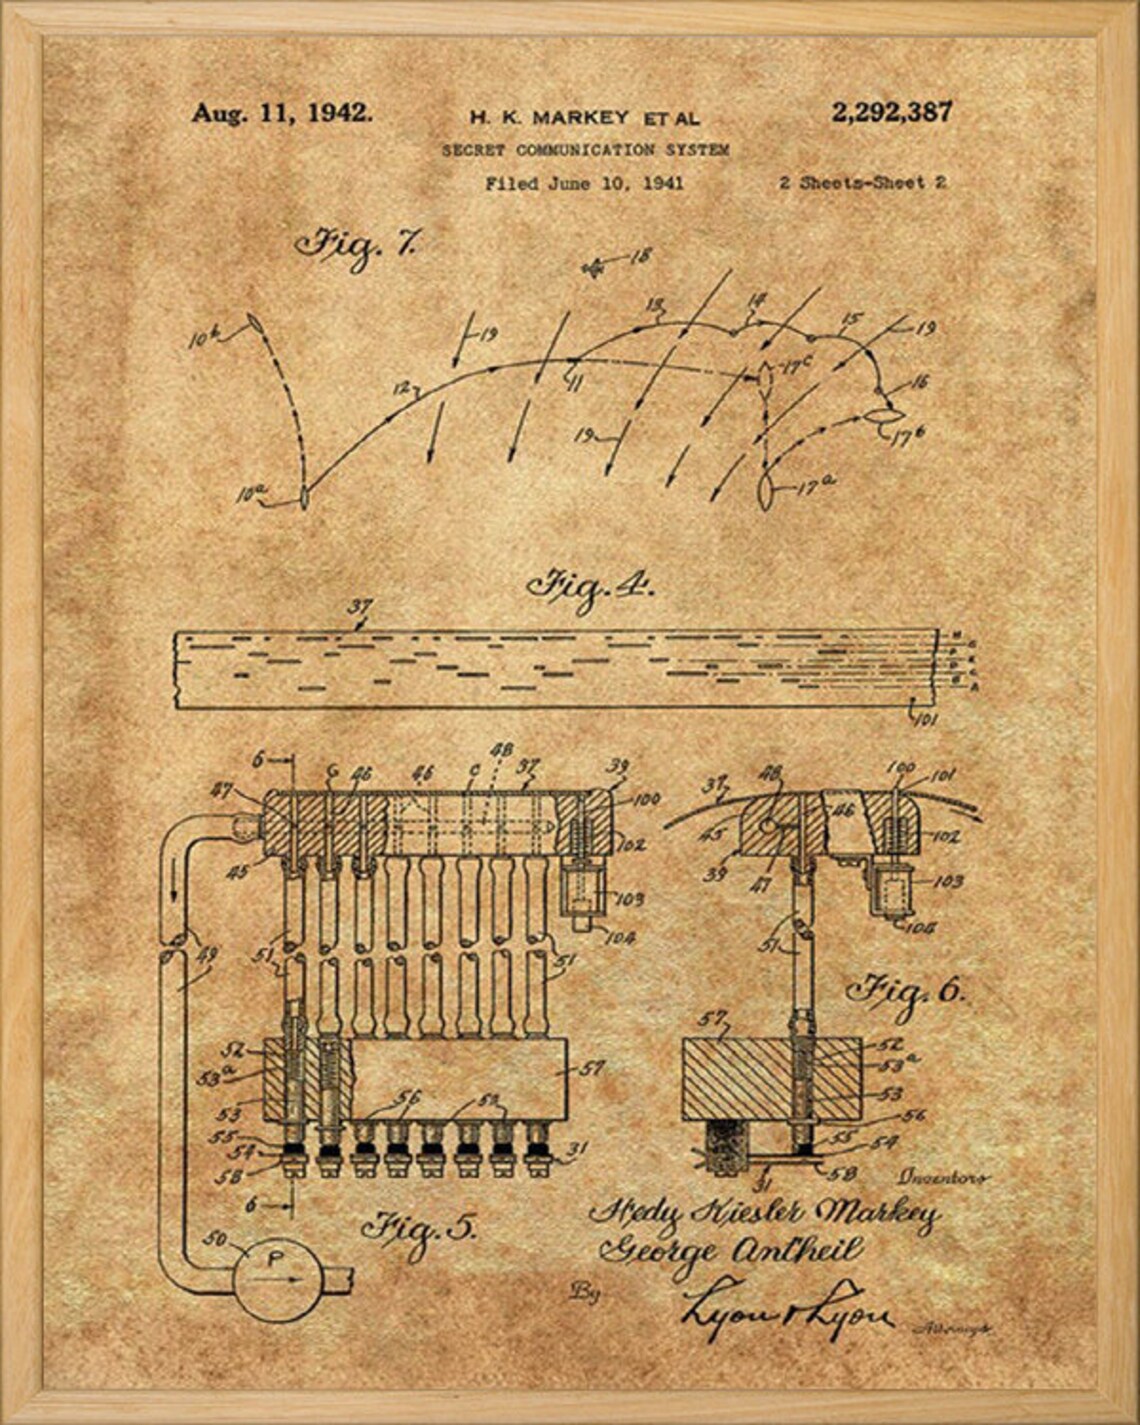 Aug. 11, 1942.
H. K. MARKEY ET AL
2,292,387
SECRET COMMUNICATION SYSTEM
Filed June 10, 1941
2 Sheets-Sheet 2
Fig. 7.
18
13
14
15
19
10b
19
12
11
17c
16
19
17b
10a
17a
Fig. 4.
37
101
6
G
46
46
C
48
37
39
47
100
102
45
103
104
49
51
51
37
48
100
101
46
45
102
39
47
103
104
51
Fig. 6.
52
53a
53
55
54
58
56
59
57
31
6
57
52
53a
53
56
55
54
58
31
Fig. 5.
50
P
Inventors
Hedy Kiesler Markey
George Antheil
By
Lyon & Lyon
Attorneys